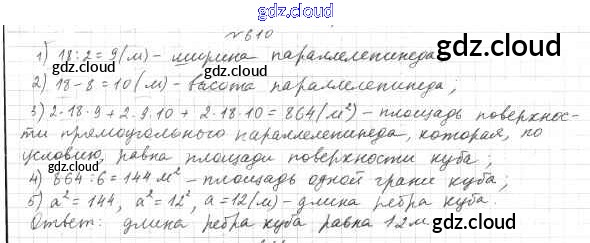 gdz.cool
№610
1) 18:2=9(м) - ширина параллелепипеда
gdz.cool
2) 18-8=10(м) - высота параллелепипеда;
gdz.cool
3) 2·18·9+2·9·10+2·18·10=864(м²) - площадь поверхнос-
ти прямоугольного параллелепипеда, которая, по
gdz.cool
условию, равна площади поверхности куба;
gdz.cool
4) 864:6=144м² - площадь одной грани куба;
5) a²=144, a²=12², a=12(м) - длина ребра куба.
gdz.cool
Ответ: длина ребра куба равна 12м
gdz.cool